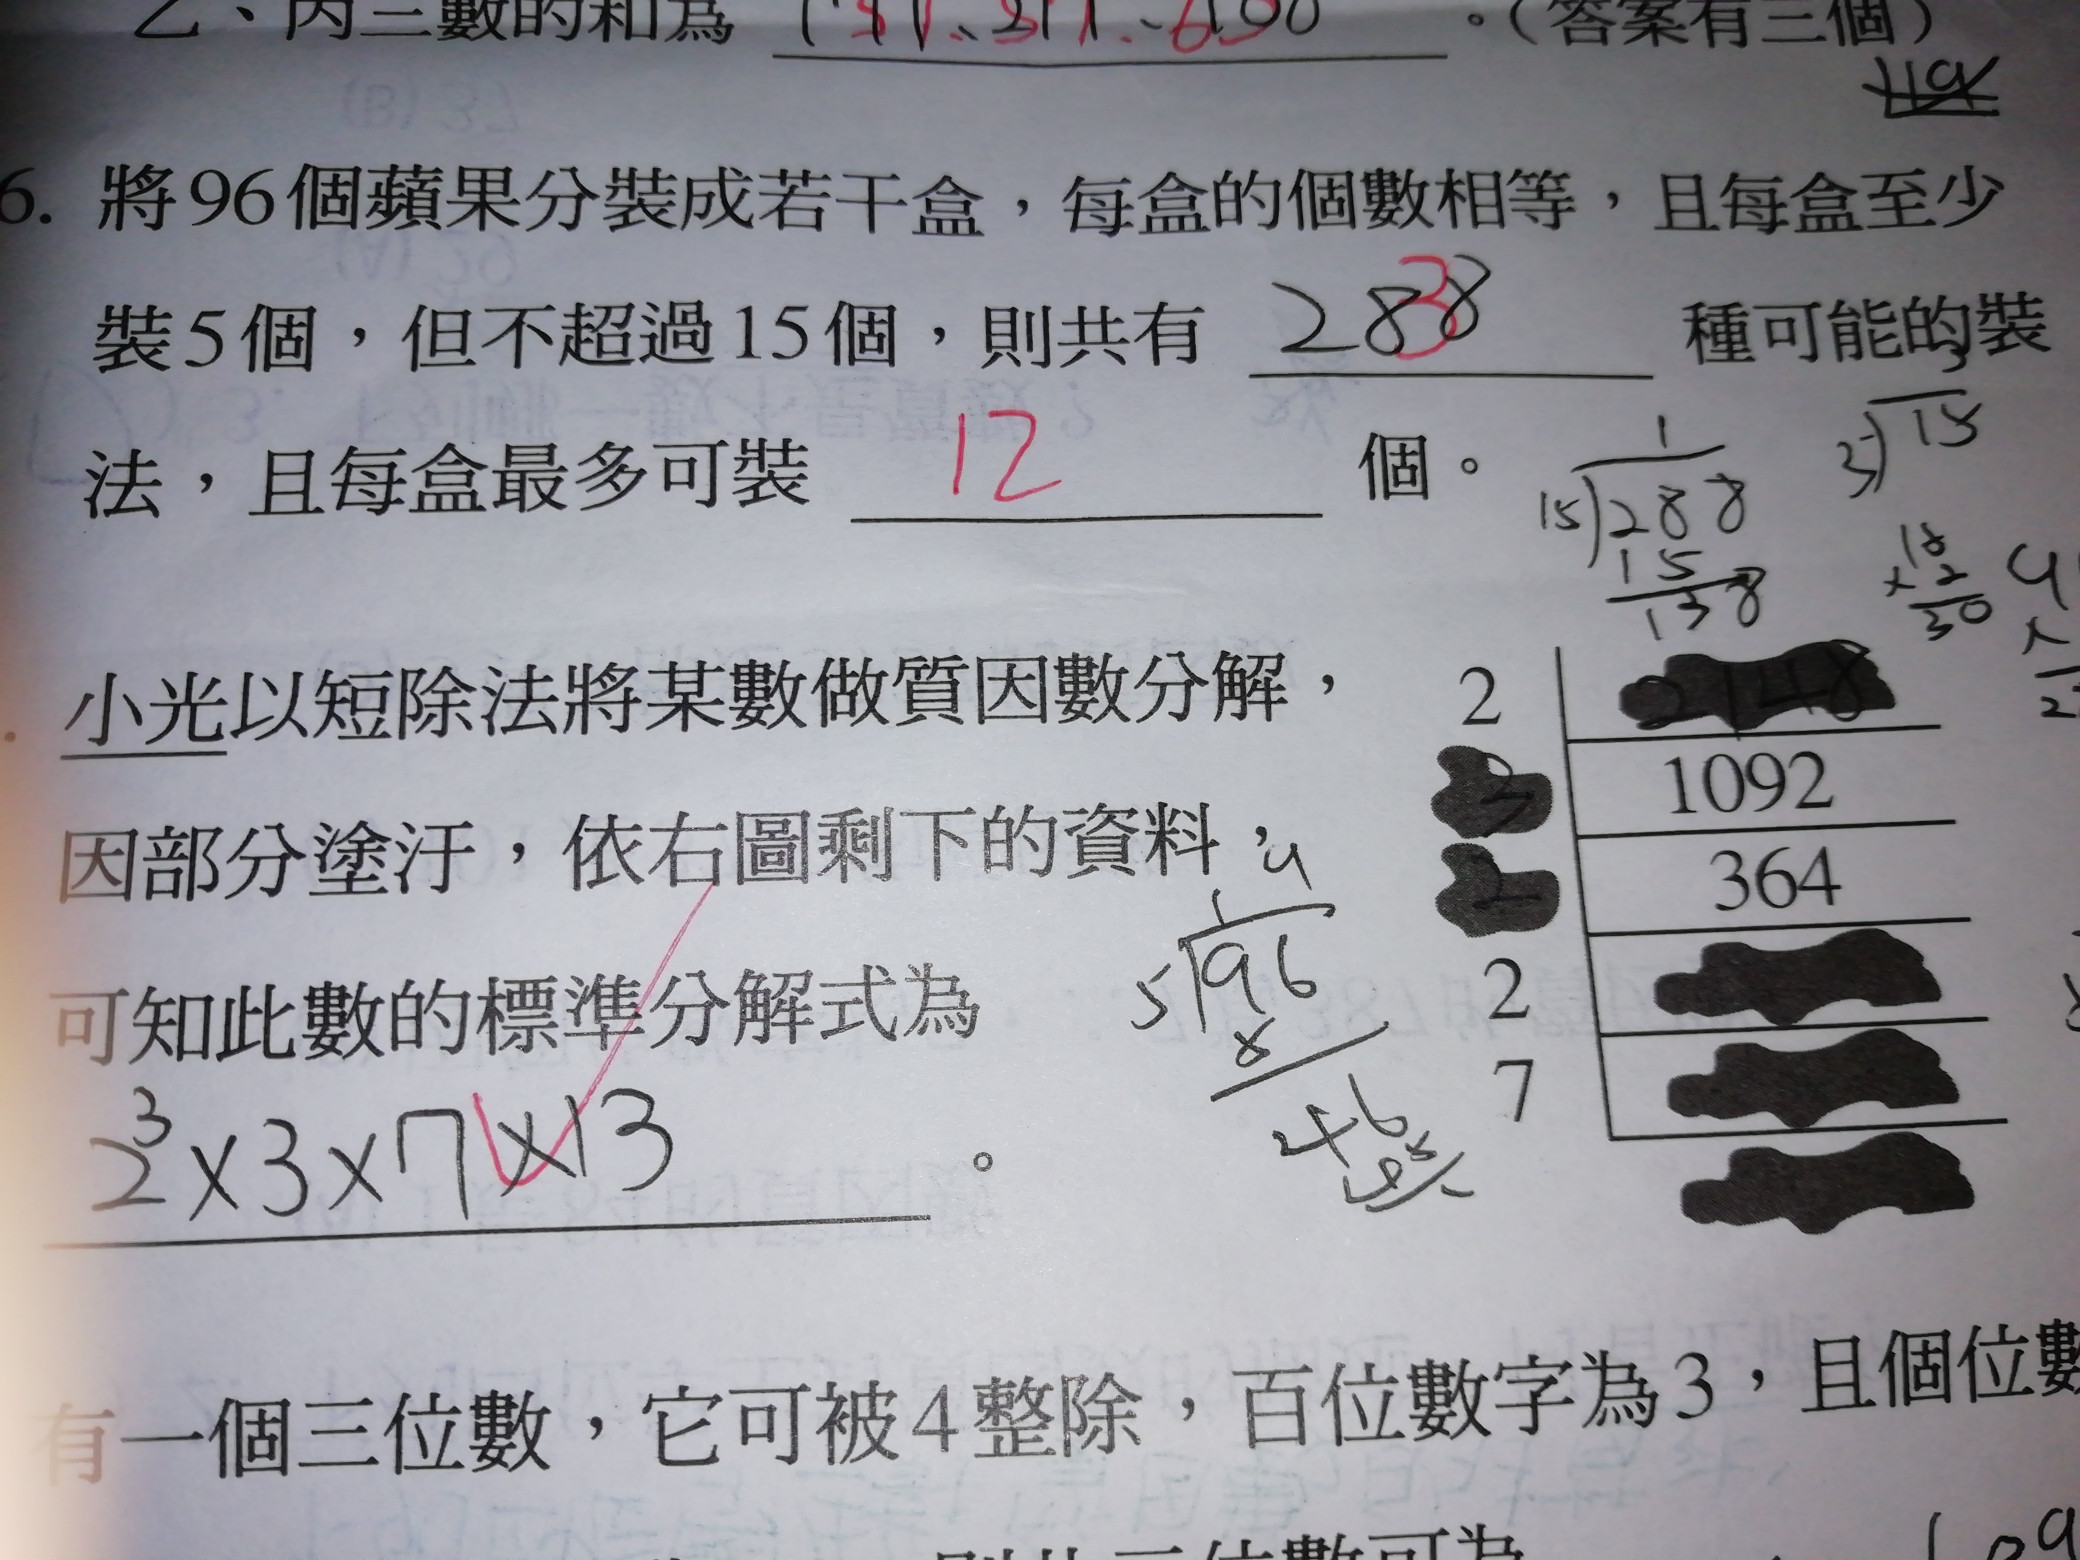 乙、丙三數的和為 。(答案有三個)
6. 將96個蘋果分裝成若干盒，每盒的個數相等，且每盒至少
裝5個，但不超過15個，則共有 288 3 種可能的裝
法，且每盒最多可裝 12 個。
1
15)288
15
138
15
小光以短除法將某數做質因數分解，
因部分塗汙，依右圖剩下的資料，
可知此數的標準分解式為
2³×3×7×13 。
2
1092
364
2
7
5)96
有一個三位數，它可被4整除，百位數字為3，且個位數